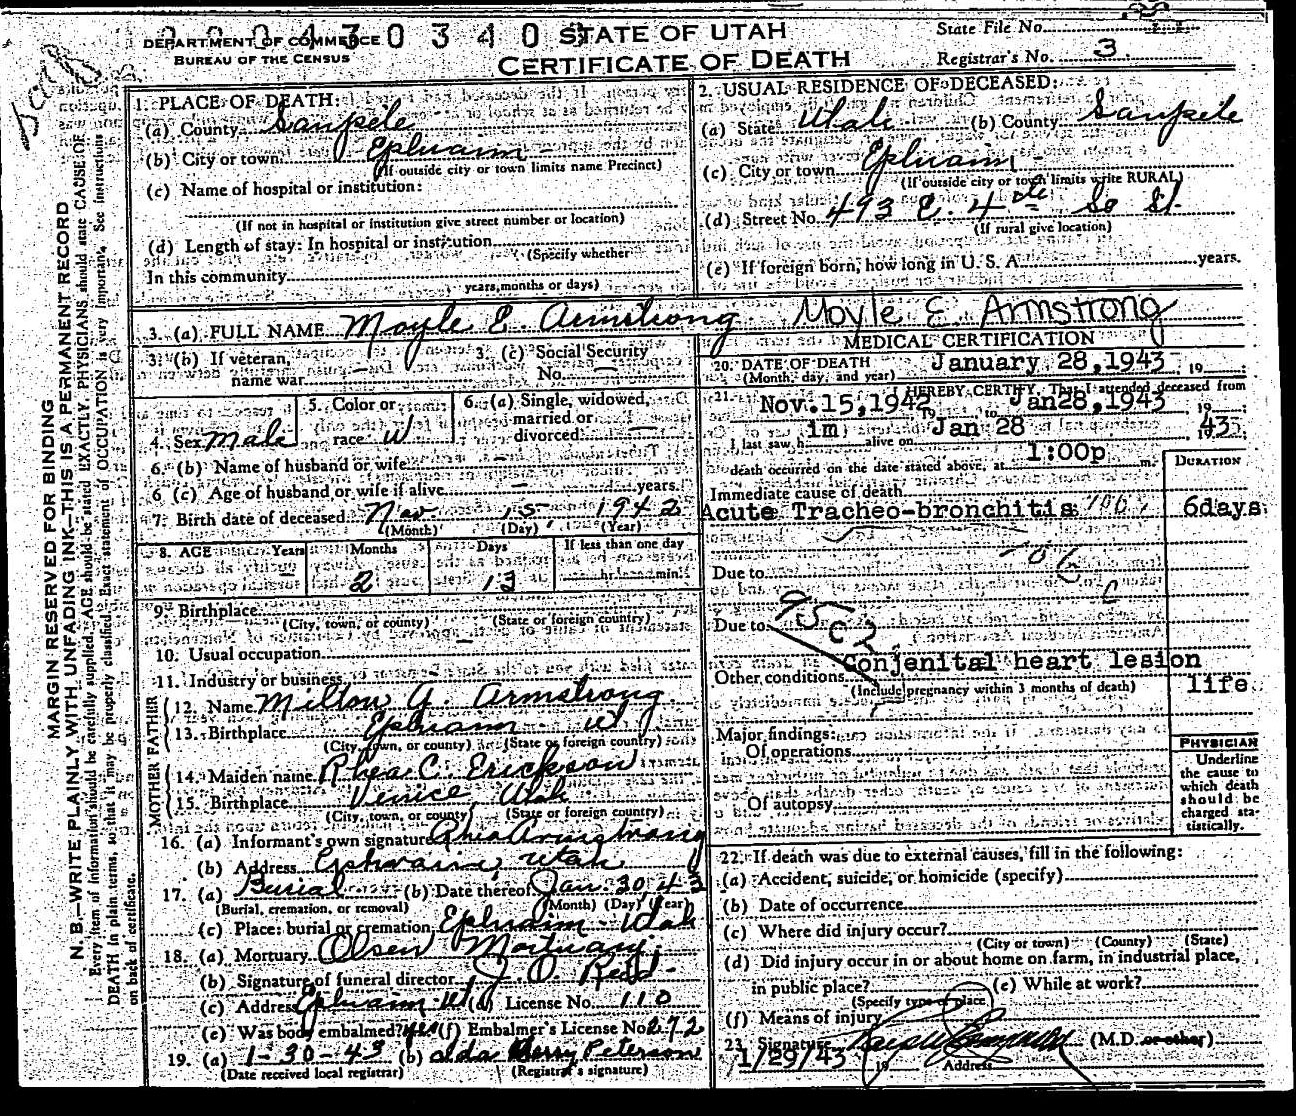 STATE OF UTAH
DEPARTMENT OF COMMERCE
BUREAU OF THE CENSUS
CERTIFICATE OF DEATH
State File No.
Registrar's No. 3
MARGIN RESERVED FOR BINDING
N. B.—WRITE PLAINLY WITH UNFADING INK—THIS IS A PERMANENT RECORD
Every item of information should be carefully supplied. AGE should be stated EXACTLY. PHYSICIANS should state CAUSE OF
DEATH in plain terms, so that it may be properly classified. Exact statement of OCCUPATION is very important. See instructions
on back of certificate.
1. PLACE OF DEATH:
(a) County Sanpete
(b) City or town Ephraim
(If outside city or town limits name Precinct)
(c) Name of hospital or institution:
(If not in hospital or institution give street number or location)
(d) Length of stay: In hospital or institution
(Specify whether
In this community
years, months or days)
2. USUAL RESIDENCE OF DECEASED:
(a) State Utah (b) County Sanpete
(c) City or town Ephraim
(If outside city or town limits write RURAL)
(d) Street No. 493 E. 4th So St.
(If rural give location)
(e) If foreign born, how long in U. S. A. years.
3. (a) FULL NAME Moyle E. Armstrong Moyle E. Armstrong
3. (b) If veteran,
name war
3. (c) Social Security
No. —
4. Sex male
5. Color or
race W
6. (a) Single, widowed,
married or
divorced —
6. (b) Name of husband or wife —
6 (c) Age of husband or wife if alive — years.
7. Birth date of deceased Nov 15 1942
(Month) (Day) (Year)
8. AGE Years Months Days If less than one day
— 2 13 hr. min.
9. Birthplace
(City, town, or county) (State or foreign country)
10. Usual occupation —
11. Industry or business
FATHER
12. Name Milton A. Armstrong
13. Birthplace Ephraim Ut
(City, town, or county) (State or foreign country)
MOTHER
14. Maiden name Rhea C. Erickson
15. Birthplace Venice, Utah
(City, town, or county) (State or foreign country)
16. (a) Informant's own signature Rhea Armstrong
(b) Address Ephraim, Utah
17. (a) Burial (b) Date thereof Jan. 30, 43
(Burial, cremation, or removal) (Month) (Day) (Year)
(c) Place: burial or cremation Ephraim Utah
18. (a) Mortuary Olsen Mortuary
(b) Signature of funeral director J. O. Redd
(c) Address Ephraim Ut (d) License No. 110
(e) Was body embalmed? yes (f) Embalmer's License No. 272
19. (a) 1-30-43 (b) Alda Peterson
(Date received local registrar) (Registrar's signature)
MEDICAL CERTIFICATION
20. DATE OF DEATH January 28,1943 , 19
(Month, day, and year)
21. I HEREBY CERTIFY, That I attended deceased from
Nov.15,1942 19 to Jan28,1943 , 19
I last saw h im alive on Jan 28 , 1943
death occurred on the date stated above, at 1:00p m.
DURATION
Immediate cause of death
Acute Tracheo-bronchitis 106 6days
Due to
106
c
Due to
95c2
Conjenital heart lesion
Other conditions
(Include pregnancy within 3 months of death)
life
Major findings:
Of operations
Of autopsy
PHYSICIAN
Underline
the cause to
which death
should be
charged sta-
tistically.
22. If death was due to external causes, fill in the following:
(a) Accident, suicide, or homicide (specify)
(b) Date of occurrence
(c) Where did injury occur?
(City or town) (County) (State)
(d) Did injury occur in or about home on farm, in industrial place,
in public place? (e) While at work?
(Specify type of place)
(f) Means of injury
23. Signature (M.D. or other)
1/29/43 19 Address